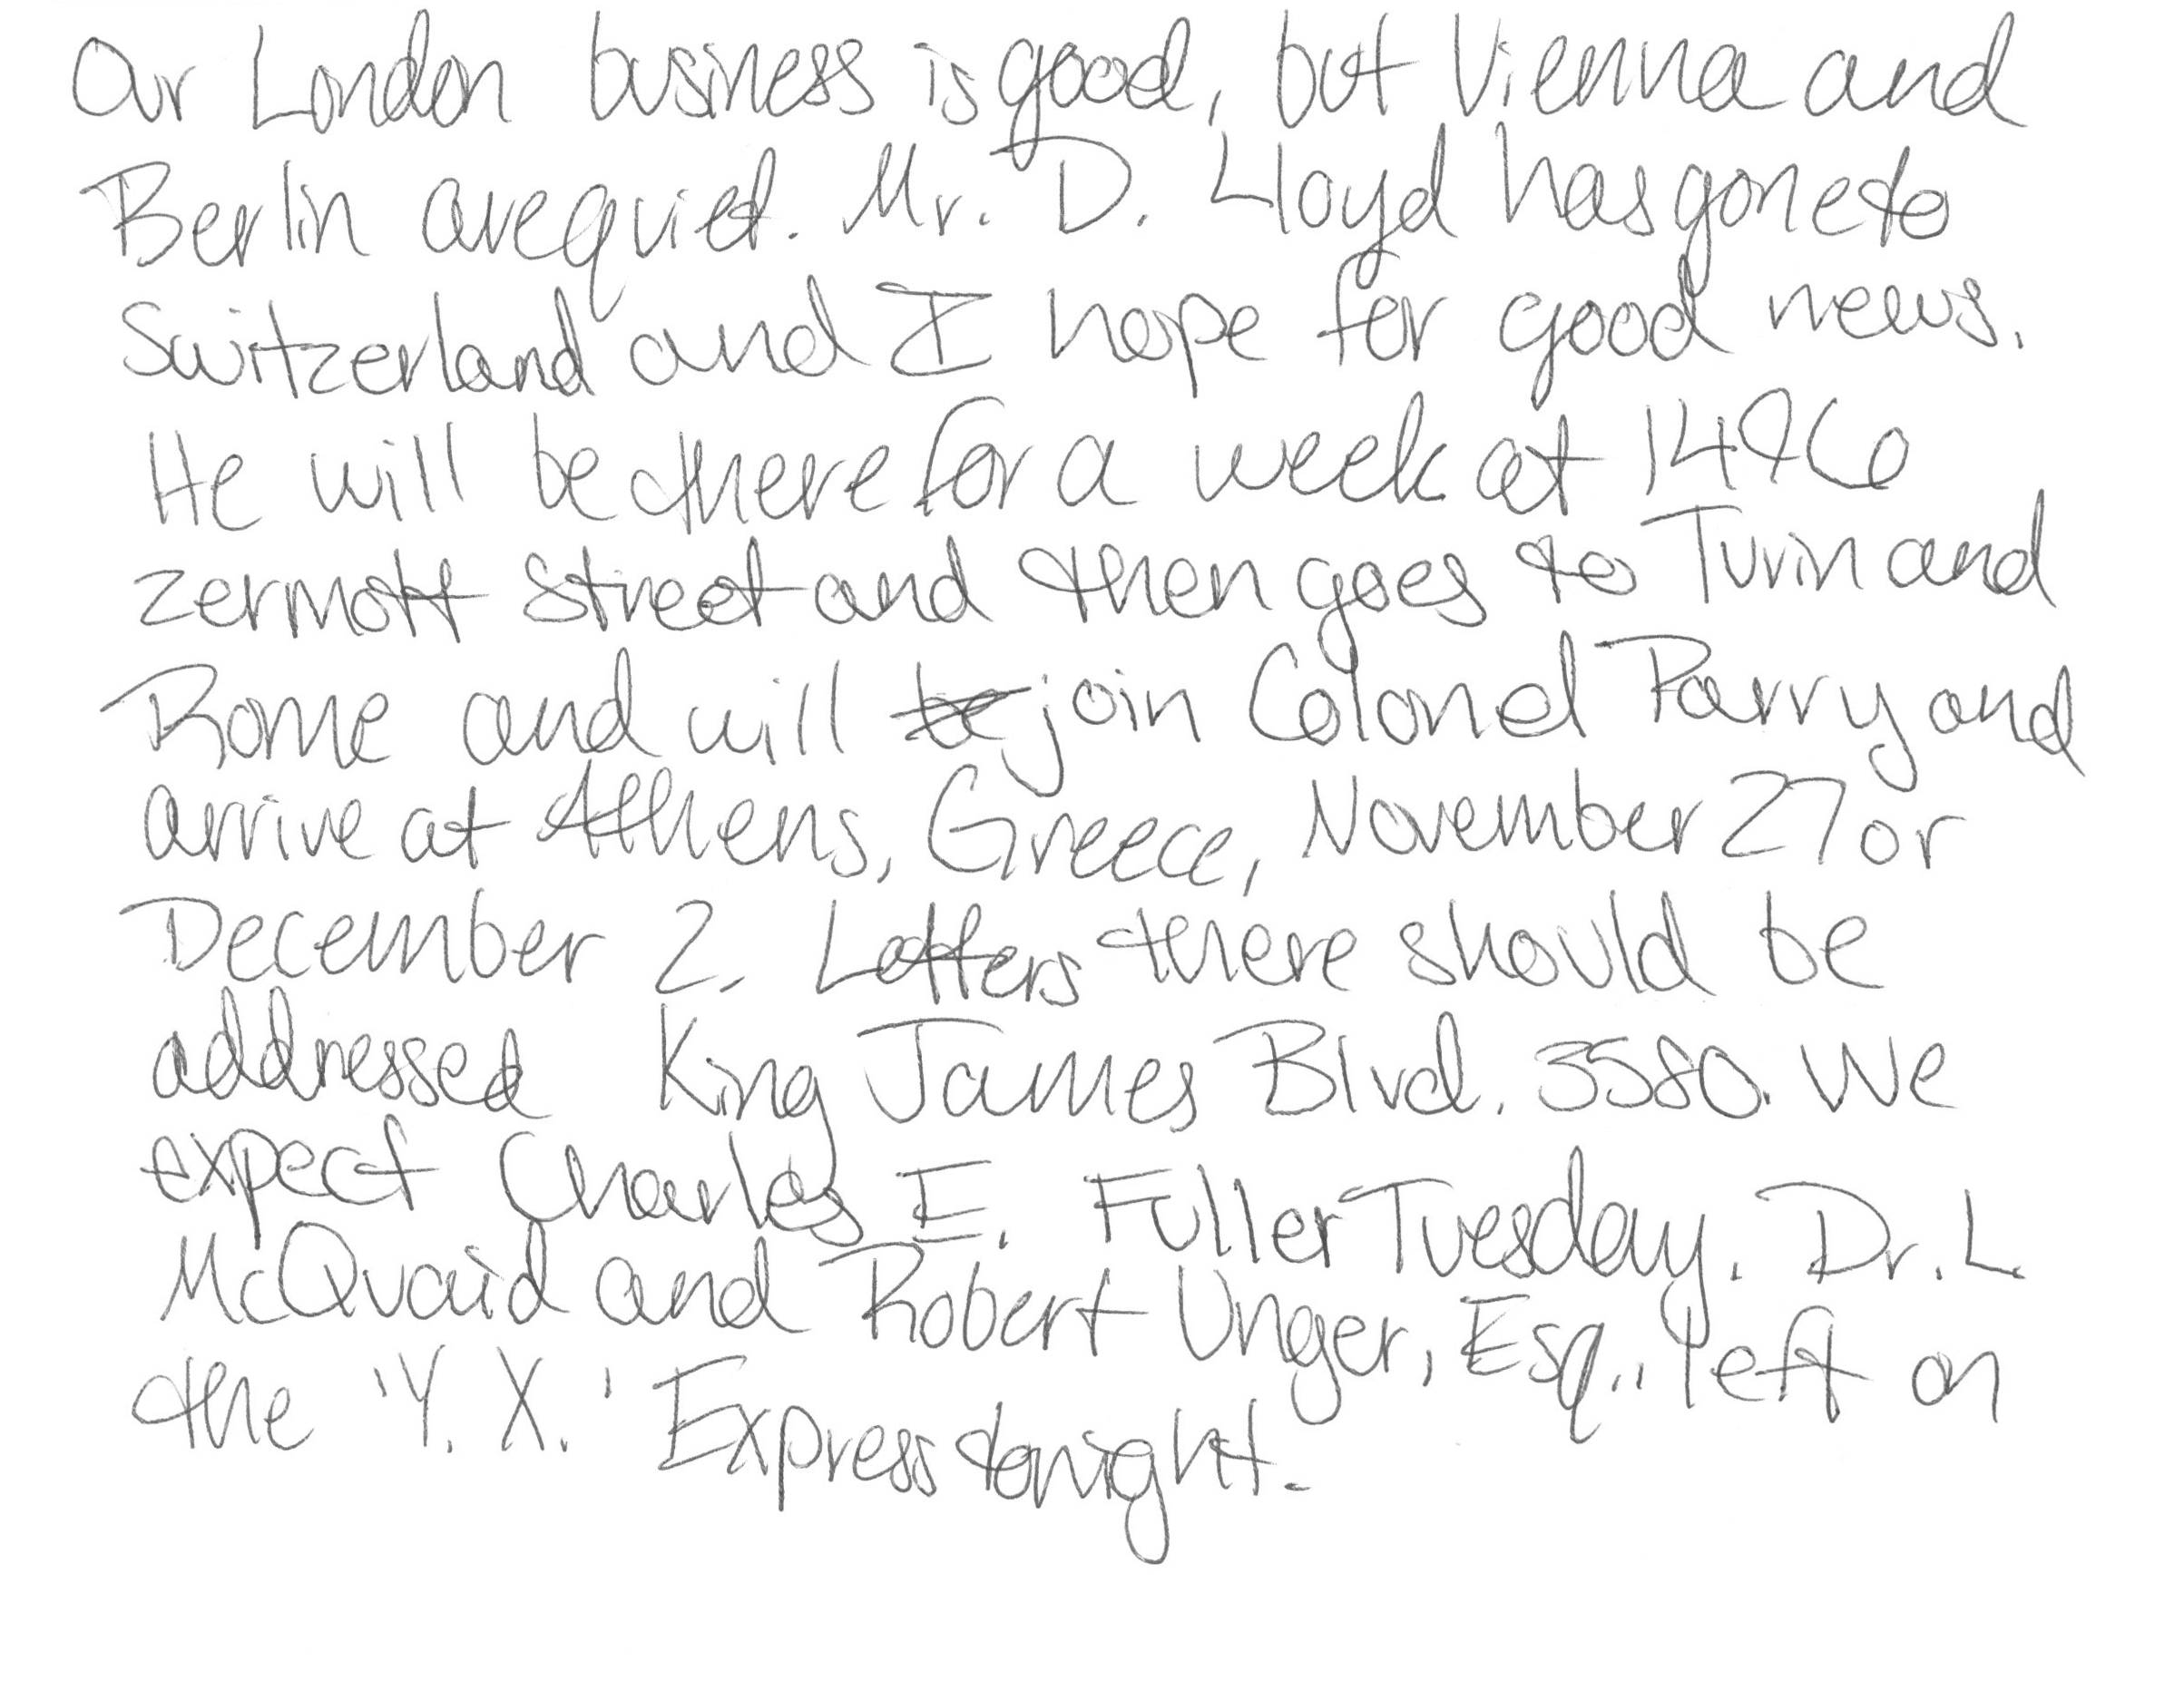 Our London business is good, but Vienna and
Berlin are quiet. Mr. D. Lloyd has gone to
Switzerland and I hope for good news.
He will be there for a week at 1496
Zermott Street and then goes to Turin and
Rome and will be join Colonel Parry and
arrive at Athens, Greece, November 27 or
December 2. Letters there should be
addressed King James Blvd. 3580. We
expect Charles E. Fuller Tuesday. Dr. L.
McQuaid and Robert Unger, Esq., left on
the 'Y. X.' Express tonight.